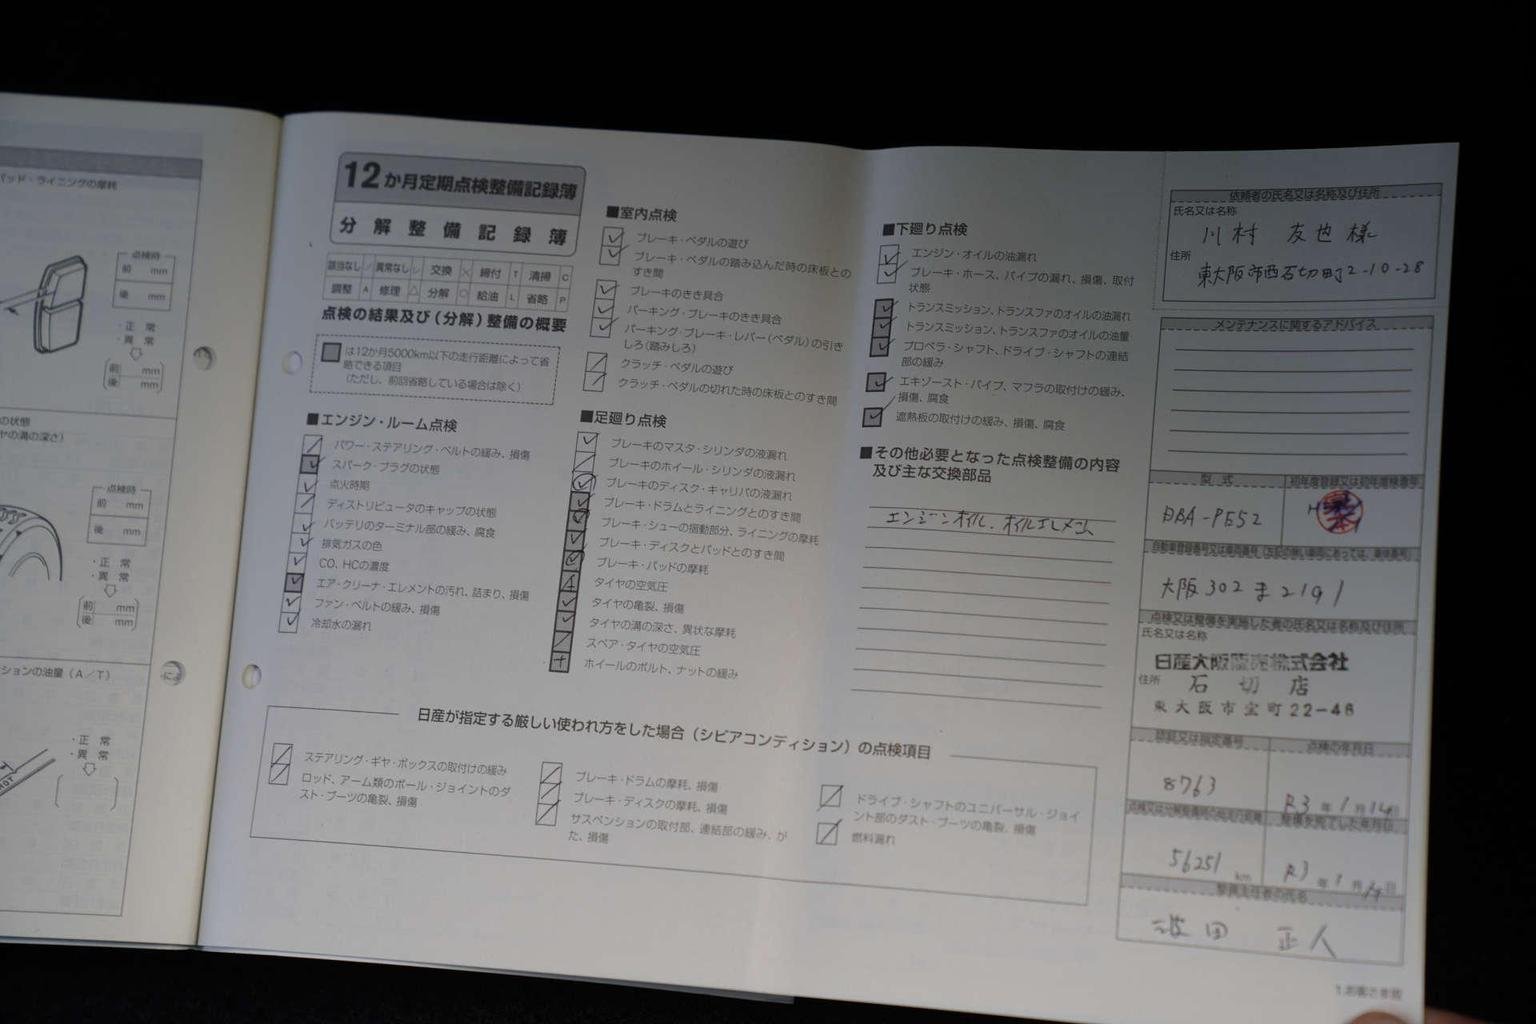 パッド・ライニングの摩耗
点検時
前 mm
後 mm
・正 常
・異 常
前 mm
後 mm
の状態
ヤの溝の深さ）
点検時
前 mm
後 mm
・正 常
・異 常
前 mm
後 mm
ションの油量（A／T）
・正 常
・異 常
12か月定期点検整備記録簿
分解整備記録簿
該当なし ／ 異常なし レ 交換 × 締付 T 清掃 C
調整 A 修理 △ 分解 ○ 給油 L 省略 P
点検の結果及び（分解）整備の概要
は12か月5000km以下の走行距離によって省
略できる項目
（ただし、前回省略している場合は除く）
■エンジン・ルーム点検
パワー・ステアリング・ベルトの緩み、損傷
スパーク・プラグの状態
点火時期
ディストリビュータのキャップの状態
バッテリのターミナル部の緩み、腐食
排気ガスの色
CO、HCの濃度
エア・クリーナ・エレメントの汚れ、詰まり、損傷
ファン・ベルトの緩み、損傷
冷却水の漏れ
■室内点検
ブレーキ・ペダルの遊び
ブレーキ・ペダルの踏み込んだ時の床板との
すき間
ブレーキのきき具合
パーキング・ブレーキのきき具合
パーキング・ブレーキ・レバー（ペダル）の引き
しろ（踏みしろ）
クラッチ・ペダルの遊び
クラッチ・ペダルの切れた時の床板とのすき間
■足廻り点検
ブレーキのマスタ・シリンダの液漏れ
ブレーキのホイール・シリンダの液漏れ
ブレーキのディスク・キャリパの液漏れ
ブレーキ・ドラムとライニングとのすき間
ブレーキ・シューの摺動部分、ライニングの摩耗
ブレーキ・ディスクとパッドとのすき間
ブレーキ・パッドの摩耗
タイヤの空気圧
タイヤの亀裂、損傷
タイヤの溝の深さ、異状な摩耗
スペア・タイヤの空気圧
ホイールのボルト、ナットの緩み
■下廻り点検
エンジン・オイルの油漏れ
ブレーキ・ホース、パイプの漏れ、損傷、取付
状態
トランスミッション、トランスファのオイルの油漏れ
トランスミッション、トランスファのオイルの油量
プロペラ・シャフト、ドライブ・シャフトの連結
部の緩み
エキゾースト・パイプ、マフラの取付けの緩み、
損傷、腐食
遮熱板の取付けの緩み、損傷、腐食
■その他必要となった点検整備の内容
及び主な交換部品
エンジンオイル、オイルエレメント
日産が指定する厳しい使われ方をした場合（シビアコンディション）の点検項目
ステアリング・ギヤ・ボックスの取付けの緩み
ロッド、アーム類のボール・ジョイントのダ
スト・ブーツの亀裂、損傷
ブレーキ・ドラムの摩耗、損傷
ブレーキ・ディスクの摩耗、損傷
サスペンションの取付部、連結部の緩み、が
た、損傷
ドライブ・シャフトのユニバーサル・ジョイ
ント部のダスト・ブーツの亀裂、損傷
燃料漏れ
依頼者の氏名又は名称及び住所
氏名又は名称
川村 友也 様
住所
東大阪市西石切町2-10-28
メンテナンスに関するアドバイス
型式
初年度登録又は初年度検査年
DBA-PE52
自動車登録番号又は車両番号（左記の無い車両にあっては、車体番号）
大阪 302 ま 2191
点検又は整備を実施した者の氏名又は名称及び住所
氏名又は名称
日産大阪販売株式会社
住所 石切店
東大阪市宝町22-48
認証又は指定番号
点検の年月日
8763
R3年1月14日
整備を完了した年月日
56251 km
R3年1月14日
整備主任者の氏名
正人
1.お客さま控